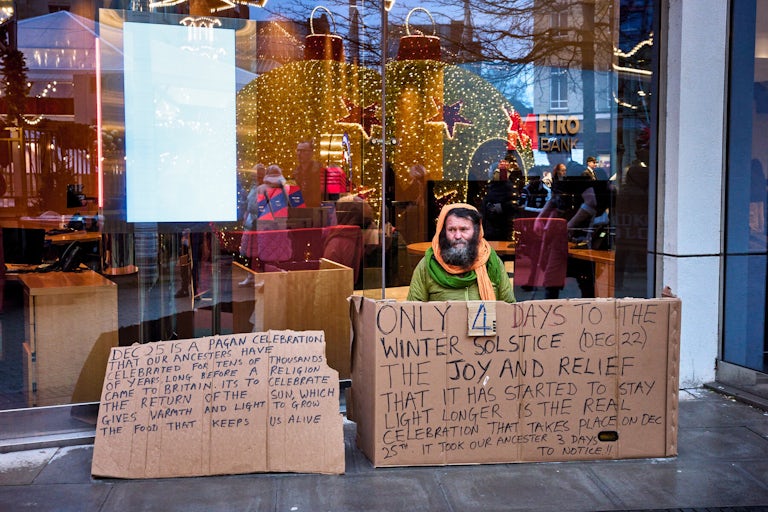 ETRO
BANK
DEC 25 IS A PAGAN CELEBRATION
THAT OUR ANCESTERS HAVE
CELEBRATED FOR TENS OF THOUSANDS
OF YEARS, LONG BEFORE A RELIGION
CAME TO BRITAIN. ITS TO CELEBRATE
THE RETURN OF THE SUN, WHICH
GIVES WARMTH AND LIGHT TO GROW
THE FOOD THAT KEEPS US ALIVE
ONLY 4 DAYS TO THE
WINTER SOLSTICE (DEC 22)
THE JOY AND RELIEF
THAT IT HAS STARTED TO STAY
LIGHT LONGER IS THE REAL
CELEBRATION THAT TAKES PLACE ON DEC
25TH IT TOOK OUR ANCESTER 3 DAYS
TO NOTICE!!